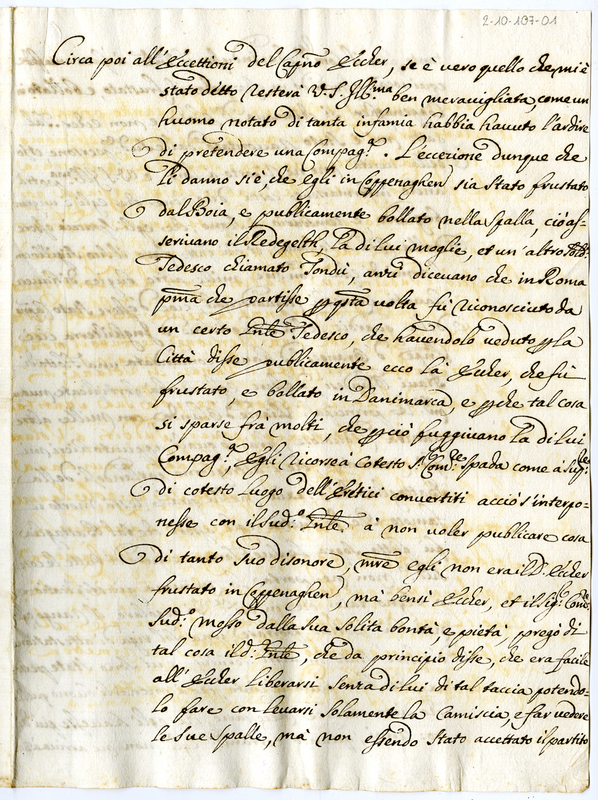 2-10-107-01
Circa poi all'Eccettioni del Capño Eccher, se è vero quello che mi è
stato detto resterà V. S. Ill.ma ben meravigliata, come un
huomo notato di tanta infamia habbia havuto l'ardire
di pretendere una Compag.ª. L'eccezione dunque che
li danno si è, che egli in Coppenaghen sia stato frustato
dal Boia, e publicamente bollato nella spalla, ciò as-
serivano il Redegelth, la di lui moglie, et un'altro
Tedesco chiamato Tondù, anzi dicevano che in Roma
pma che partisse p qsta volta fù riconosciuto da
un certo Tedesco, che havendolo veduto p la
Città disse publicamente ecco la Eccher, che fù
frustato, e bollato in Danimarca, e pche tal cosa
si sparse frà molti, che pciò fuggivano la di lui
Compag.ª, Egli ricorse à cotesto S. Com.re Spada come à Sup.re
di cotesto luogo dell'Eretici convertiti acciò s'interpo-
nesse con il Sud.º à non voler publicare cosa
di tanto suo disonore, mre egli non era il D. Eccher
frustato in Coppenaghen, mà bensì Eccher, et il Sig. Com.re
Sud.º mosso dalla sua solita bontà e pietà, pregò di
tal cosa il d.º, che da principio disse, che era facile
all'Eccher liberarsi senza di lui di tal taccia potendo-
lo fare con levarsi solamente la Camiscia, e far vedere
le sue spalle, mà non essendo stato accettato il partito